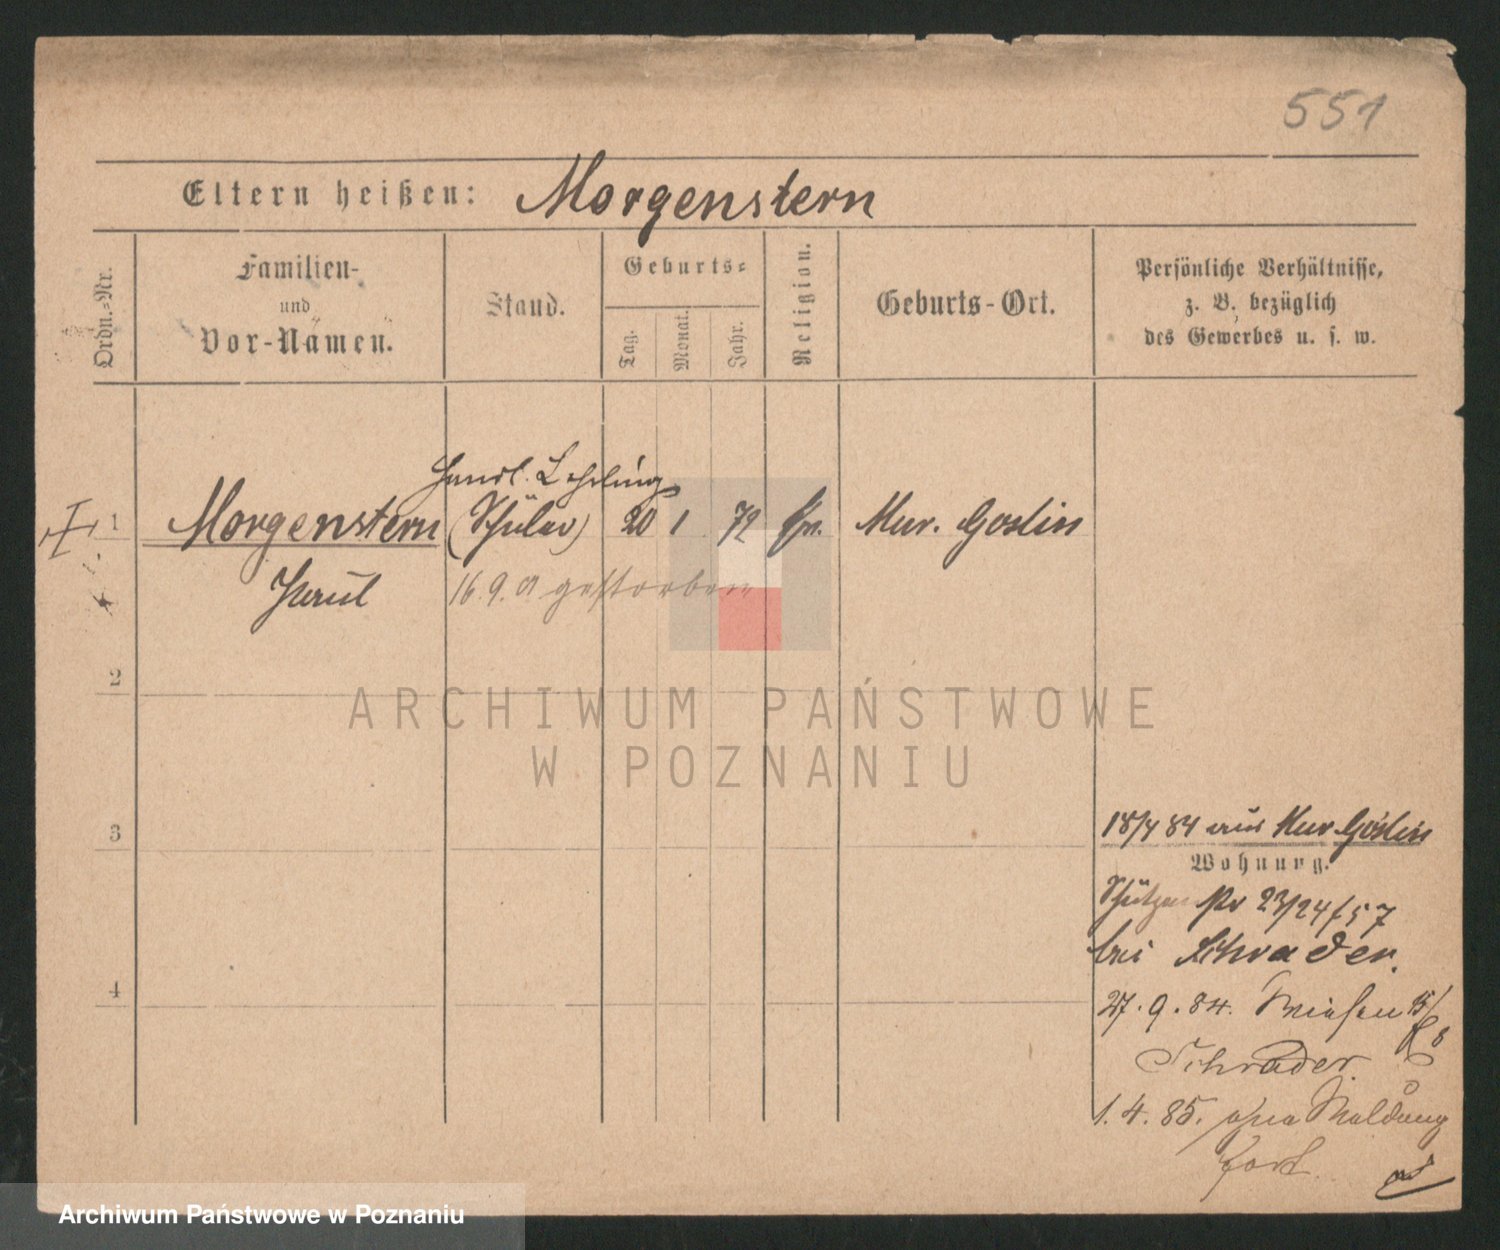 551
Eltern heißen: Morgenstern
Ordn.-Nr.
Familien-
und
Vor-Namen.
Stand.
Geburts-
Tag.
Monat.
Jahr.
Religion.
Geburts-Ort.
Persönliche Verhältnisse,
z. B. bezüglich
des Gewerbes u. s. w.
Handl. Lehrling
1 Morgenstern (Schüler) 20 1 72 Mur. Goslin
Paul 16.9. gestorben
2
ARCHIWUM PAŃSTWOWE
W POZNANIU
3
18/4 84 aus Mur. Goslin
Wohnung.
Schützen 23/24
bei Schrader.
4
27. 9. 84. Wiesen
Schrader.
1. 4. 85. ohne Meldung
fort.
Archiwum Państwowe w Poznaniu